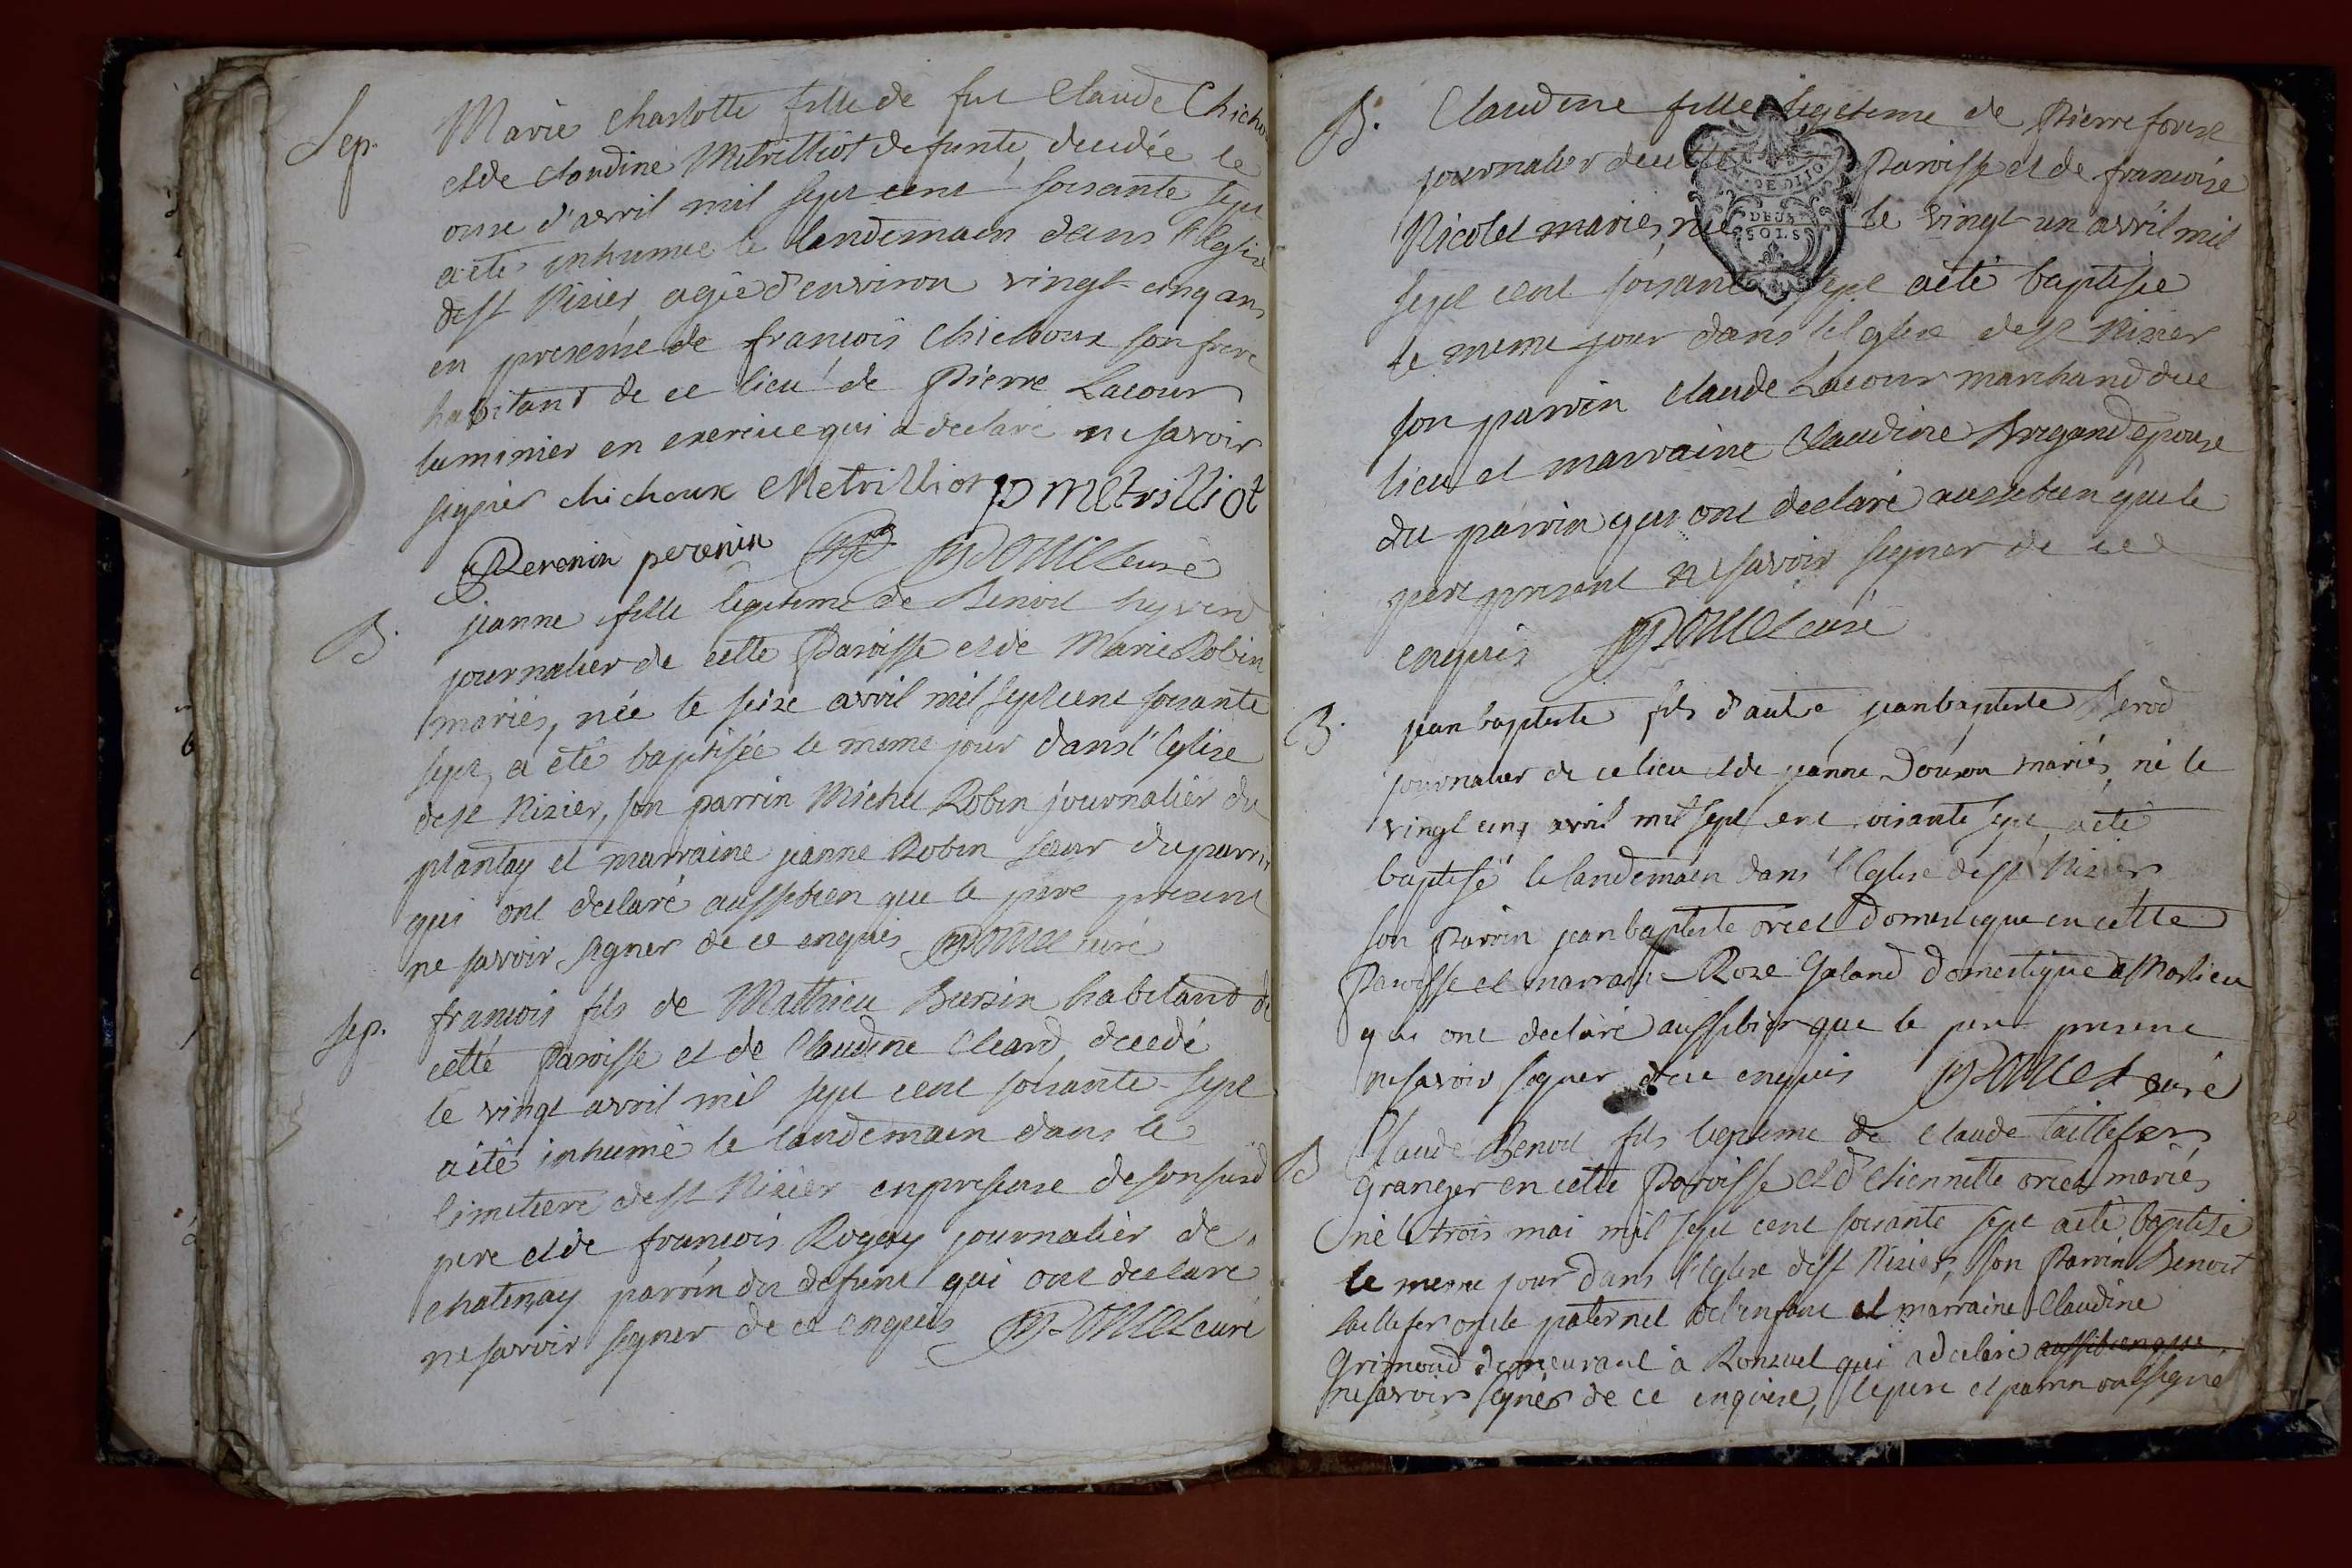 Sep. Marie Charlotte fille de feu Claude Chichou
et de Claudine Metrilliot defunte, decedée le
onze d'avril mil sept cent soixante sept
a été inhumée le landemain dans l'Eglise
de St Nizier agée d'environ vingt-cinq ans
en presence de françois Chichoux son frere
habitant de ce lieu de Pierre Lacour
luminier en exercice qui a declaré ne savoir
signer chichoux Metrilliot P Metrilliot
Perenin perenin curé
B. jeanne fille legitime de Benoit
journalier de cette Paroisse et de Marie Robin
mariés, née le seize avril mil sept cent soixante
sept, a été baptisée le meme jour dans l'Eglise
de St Nizier, son parrin Michel Robin journalier du
plantay et marraine jeanne Robin soeur du parrin
qui ont declaré aussi bien que le pere present
ne savoir signer de ce enquis curé
Sep. francois fils de Mathieu Bursin habitant de
cette Paroisse et de Claudine Cleard, decedé
le vingt avril mil sept cent soixante-sept
a été inhumé le landemain dans le
Cimetiere de St Nizier en presence de son
pere et de françois Rogery journalier de
chatenay parrin du defunt qui ont declaré
ne savoir signer de ce enquis curé
B. Claudine fille legitime de Pierre
journalier de Paroisse et de francoise
Nicolet mariés, née le vingt-un avril mil
sept cent soixante sept a été baptisée
le meme jour dans l'Eglise de St Nizier
son parrin Claude Lacour marchand du
lieu et marraine Claudine epouse
du parrin qui ont declaré aussi bien que le
pere present ne savoir signer de ce
enquis curé
DEUX
SOLS
B. jean baptiste fils d'autre jean baptiste
journalier de ce lieu et de jeanne mariés, né le
vingt cinq avril mil sept cent soixante sept, a été
baptisé le landemain dans l'Eglise de St Nizier
son Parrin jean baptiste orcet Domestique en cette
Paroisse et marraine Roze Galand domestique a Marlieu
qui ont declaré aussi bien que le pere present
ne savoir signer de ce enquis curé
B Claude Benoit fils legitime de Claude taillefer
Granger en cette Paroisse et d'Etiennette orcet mariés
né le trois mai mil sept cent soixante sept a été baptisé
le meme jour dans l'Eglise de St Nizier, son Parrin Benoit
taillefer oncle paternel de l'enfant et marraine Claudine
Grimoud demeurant à Ronzuel qui a declaré aussi bien que
ne savoir signer de ce enquise, le pere et parrin ont signé